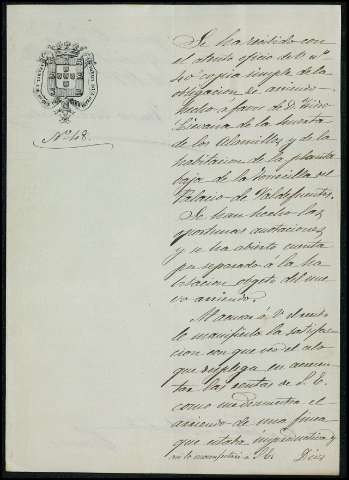 Nº 48.
Se ha recibido con
el atento oficio de V. nº
40 copia simple de la
obligacion de arriendo
hecho á favor de D. Isidro
de la huerta
de los y de la
habitacion de la planta
baja de la del
Palacio de Valdefuentes.
Se han hecho las
oportunas anotaciones
y se ha abierto cuenta
por separado á la ha
bitacion objeto del nue
vo arriendo.
Al acusar á V. el recibo
le manifiesto la satisfac
cion con que veo el celo
que despliega en aumen
tar las rentas de S. E.
como lo demuestra el
arriendo de una finca
que estaba improductiva y
Dios